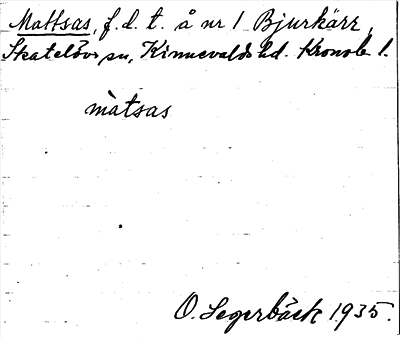 Mattsas, f. d. t. å nr 1 Bjurkärr,
Skatelövs sn, Kinnevalds hd. Kronob l.
màtsas
O. Segerbäck 1935.